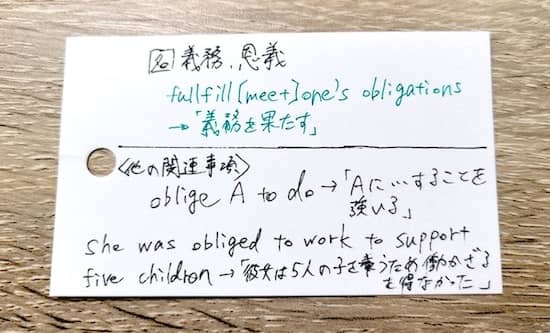 名 義務、恩義
fullfill[meet]one's obligations
→「義務を果たす」
<他の関連事項>
oblige A to do→「Aに…することを
強いる」
she was obliged to work to support
five children→「彼女は5人の子を養うため働かざる
を得なかった」